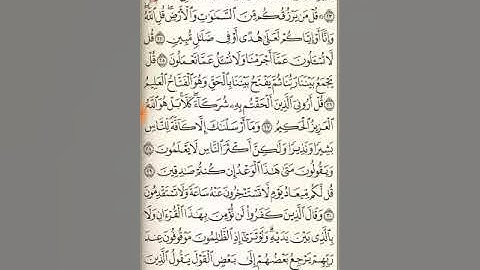 ﴿٢٣﴾ قُلْ مَن يَرْزُقُكُم مِّنَ ٱلسَّمَـٰوَٰتِ وَٱلْأَرْضِ ۖ قُلِ ٱللَّهُ ۖ
وَإِنَّآ أَوْ إِيَّاكُمْ لَعَلَىٰ هُدًى أَوْ فِى ضَلَـٰلٍ مُّبِينٍ ﴿٢٤﴾ قُل
لَّا تُسْـَٔلُونَ عَمَّآ أَجْرَمْنَا وَلَا نُسْـَٔلُ عَمَّا تَعْمَلُونَ ﴿٢٥﴾ قُلْ
يَجْمَعُ بَيْنَنَا رَبُّنَا ثُمَّ يَفْتَحُ بَيْنَنَا بِٱلْحَقِّ وَهُوَ ٱلْفَتَّاحُ ٱلْعَلِيمُ
﴿٢٦﴾ قُلْ أَرُونِىَ ٱلَّذِينَ أَلْحَقْتُم بِهِۦ شُرَكَآءَ ۖ كَلَّا ۚ بَلْ هُوَ ٱللَّهُ
ٱلْعَزِيزُ ٱلْحَكِيمُ ﴿٢٧﴾ وَمَآ أَرْسَلْنَـٰكَ إِلَّا كَآفَّةً لِّلنَّاسِ
بَشِيرًا وَنَذِيرًا وَلَـٰكِنَّ أَكْثَرَ ٱلنَّاسِ لَا يَعْلَمُونَ ﴿٢٨﴾
وَيَقُولُونَ مَتَىٰ هَـٰذَا ٱلْوَعْدُ إِن كُنتُمْ صَـٰدِقِينَ ﴿٢٩﴾
قُل لَّكُم مِّيعَادُ يَوْمٍ لَّا تَسْتَـْٔخِرُونَ عَنْهُ سَاعَةً وَلَا تَسْتَقْدِمُونَ
﴿٣٠﴾ وَقَالَ ٱلَّذِينَ كَفَرُوا۟ لَن نُّؤْمِنَ بِهَـٰذَا ٱلْقُرْءَانِ وَلَا
بِٱلَّذِى بَيْنَ يَدَيْهِ ۗ وَلَوْ تَرَىٰٓ إِذِ ٱلظَّـٰلِمُونَ مَوْقُوفُونَ عِندَ
رَبِّهِمْ يَرْجِعُ بَعْضُهُمْ إِلَىٰ بَعْضٍ ٱلْقَوْلَ يَقُولُ ٱلَّذِينَ